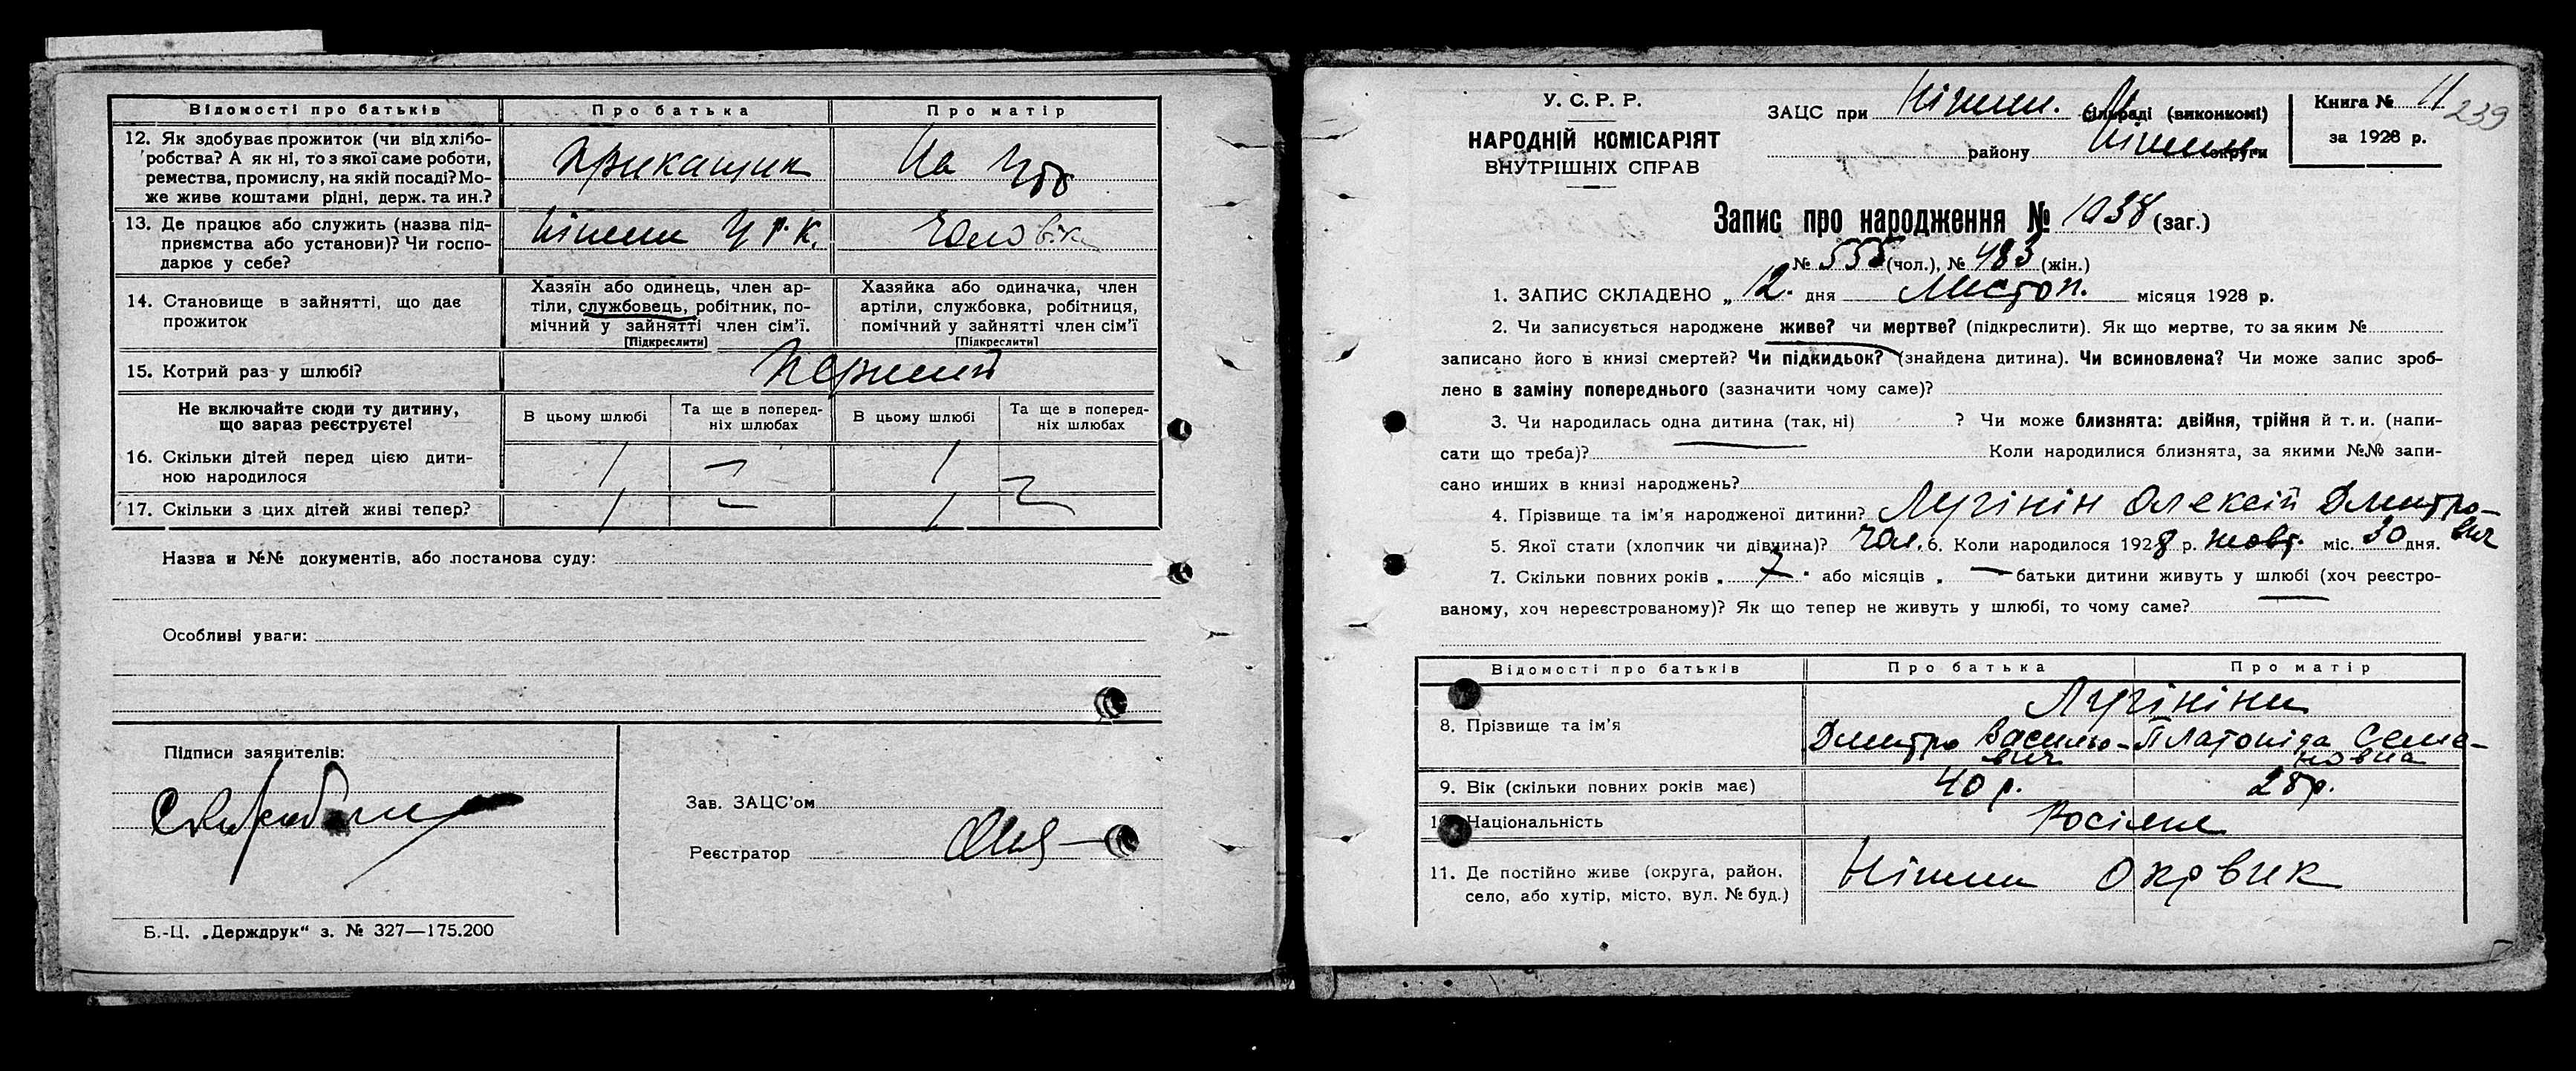 Відомості про батьків Про батька Про матір
12. Як здобуває прожиток (чи від хлібо-
робства? А як ні, то з якої саме роботи,
ремества, промислу, на якій посаді? Мо-
же живе коштами рідні, держ. та ин.?
Прикащик На
13. Де працює або служить (назва під-
приємства або установи)? Чи госпо-
дарює у себе?
Ніжин Ц Р. К. Чоловік
14. Становище в зайнятті, що дає
прожиток
Хазяїн або одинець, член ар-
тіли, службовець, робітник, по-
мічний у зайнятті член сім'ї.
[Підкреслити]
Хазяйка або одиначка, член
артіли, службовка, робітниця,
помічний у зайнятті член сім'ї
[Підкреслити]
15. Котрий раз у шлюбі? Перший
Не включайте сюди ту дитину,
що зараз реєструєте!
В цьому шлюбі Та ще в поперед-
ніх шлюбах В цьому шлюбі Та ще в поперед-
ніх шлюбах
16. Скільки дітей перед цією дити-
ною народилося 1 — 1 —
17. Скільки з цих дітей живі тепер? 1 — 1 —
Назва и №№ документів, або постанова суду:
Особливі уваги:
Підписи заявителів:
Зав. ЗАЦС'ом
Реєстратор
Б.-Ц. „Держдрук“ з. № 327—175.200
У. С. Р. Р.
НАРОДНІЙ КОМІСАРІЯТ
ВНУТРІШНІХ СПРАВ
ЗАЦС при Ніжин. сільраді (виконкомі)
району Ніжин. округи
Книга № 11
за 1928 р.
239
Запис про народження № 1038 (заг.)
№ 555 (чол.), № 483 (жін.)
1. ЗАПИС СКЛАДЕНО „ 12. дня Листоп. місяця 1928 р.
2. Чи записується народжене живе? чи мертве? (підкреслити). Як що мертве, то за яким №
записано його в книзі смертей? Чи підкидьок? (знайдена дитина). Чи всиновлена? Чи може запис зроб-
лено в заміну попереднього (зазначити чому саме)?
3. Чи народилась одна дитина (так, ні) ? Чи може близнята: двійня, трійня й т. и. (напи-
сати що треба)? Коли народилися близнята, за якими №№ запи-
сано инших в книзі народжень?
4. Прізвище та ім'я народженої дитини? Лугінін Олексій Дмитро-
вич
5. Якої стати (хлопчик чи дівчина)? Чол. 6. Коли народилося 1928 р. жовт. міс. 30 дня.
7. Скільки повних років „ 7 “ або місяців „ — батьки дитини живуть у шлюбі (хоч реєстро-
ваному, хоч нереєстрованому)? Як що тепер не живуть у шлюбі, то чому саме?
Відомості про батьків Про батька Про матір
8. Прізвище та ім'я
Лугініни
Дмитро Васильо-
вич
Платоніда Семе-
новна
9. Вік (скільки повних років має) 40 р. 28 р.
10. Національність Росіяне
11. Де постійно живе (округа, район,
село, або хутір, місто, вул. № буд.)
Ніжин Окрвик